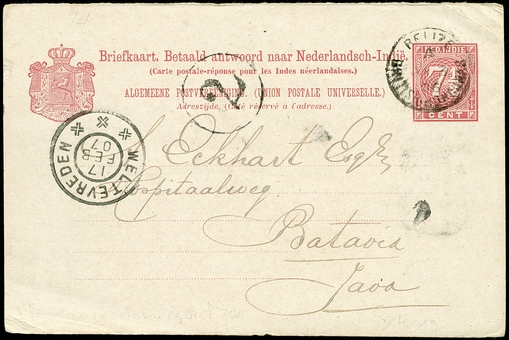 Briefkaart. Betaald antwoord naar Nederlandsch-Indië.
(Carte postale-réponse pour les Indes néerlandaises.)
ALGEMEENE POSTVEREENIGING. (UNION POSTALE UNIVERSELLE).
Adreszijde. (Côté réservé à l'adresse.)
NED-INDIE
7½
CENT
BELIZE
WELTEVREDEN
17
FEB
07
Eckhart Esq
Hospitaalweg
Batavia
Java